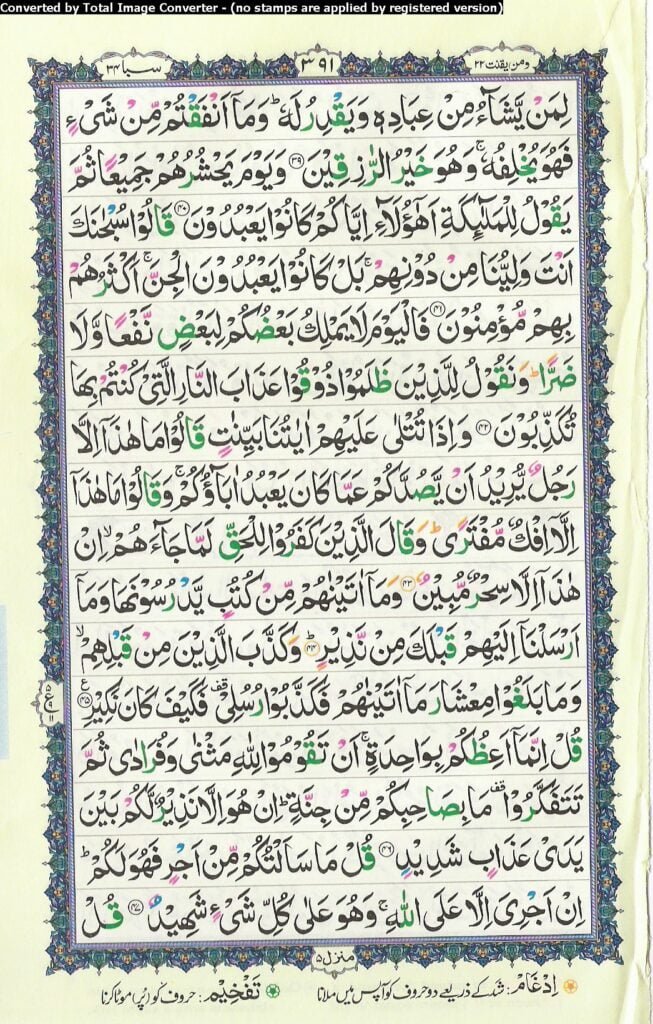 Converted by Total Image Converter - (no stamps are applied by registered version)
ومن یقنت ۲۲
۳۹۱
سبا ۳۴
لِمَنْ يَّشَآءُ مِنْ عِبَادِهٖ وَيَقْدِرُ لَهٗ ؕ وَمَاۤ اَنْفَقْتُمْ مِّنْ شَىْءٍ
فَهُوَ يُخْلِفُهٗ ۚ وَهُوَ خَيْرُ الرّٰزِقِيْنَ ﴿۳۹﴾ وَيَوْمَ يَحْشُرُهُمْ جَمِيْعًا ثُمَّ
يَقُوْلُ لِلْمَلٰٓئِكَةِ اَهٰٓؤُلَآءِ اِيَّاكُمْ كَانُوْا يَعْبُدُوْنَ ﴿۴۰﴾ قَالُوْا سُبْحٰنَكَ
اَنْتَ وَلِيُّنَا مِنْ دُوْنِهِمْ ۚ بَلْ كَانُوْا يَعْبُدُوْنَ الْجِنَّ ۚ اَكْثَرُهُمْ
بِهِمْ مُّؤْمِنُوْنَ ﴿۴۱﴾ فَالْيَوْمَ لَا يَمْلِكُ بَعْضُكُمْ لِبَعْضٍ نَّفْعًا وَّلَا
ضَرًّا ؕ وَنَقُوْلُ لِلَّذِيْنَ ظَلَمُوْا ذُوْقُوْا عَذَابَ النَّارِ الَّتِىْ كُنْتُمْ بِهَا
تُكَذِّبُوْنَ ﴿۴۲﴾ وَاِذَا تُتْلٰى عَلَيْهِمْ اٰيٰتُنَا بَيِّنٰتٍ قَالُوْا مَا هٰذَاۤ اِلَّا
رَجُلٌ يُّرِيْدُ اَنْ يَّصُدَّكُمْ عَمَّا كَانَ يَعْبُدُ اٰبَآؤُكُمْ ۚ وَقَالُوْا مَا هٰذَاۤ
اِلَّاۤ اِفْكٌ مُّفْتَرًى ؕ وَقَالَ الَّذِيْنَ كَفَرُوْا لِلْحَقِّ لَمَّا جَآءَهُمْ ۙ اِنْ
هٰذَاۤ اِلَّا سِحْرٌ مُّبِيْنٌ ﴿۴۳﴾ وَمَاۤ اٰتَيْنٰهُمْ مِّنْ كُتُبٍ يَّدْرُسُوْنَهَا وَمَاۤ
اَرْسَلْنَاۤ اِلَيْهِمْ قَبْلَكَ مِنْ نَّذِيْرٍ ؕ ﴿۴۴﴾ وَكَذَّبَ الَّذِيْنَ مِنْ قَبْلِهِمْ ۙ
وَمَا بَلَغُوْا مِعْشَارَ مَاۤ اٰتَيْنٰهُمْ فَكَذَّبُوْا رُسُلِىْ ۫ فَكَيْفَ كَانَ نَكِيْرِ ﴿۴۵﴾ ع
قُلْ اِنَّمَاۤ اَعِظُكُمْ بِوَاحِدَةٍ ۚ اَنْ تَقُوْمُوْا لِلّٰهِ مَثْنٰى وَفُرَادٰى ثُمَّ
تَتَفَكَّرُوْا ۫ مَا بِصَاحِبِكُمْ مِّنْ جِنَّةٍ ؕ اِنْ هُوَ اِلَّا نَذِيْرٌ لَّكُمْ بَيْنَ
يَدَىْ عَذَابٍ شَدِيْدٍ ﴿۴۶﴾ قُلْ مَا سَاَلْتُكُمْ مِّنْ اَجْرٍ فَهُوَ لَكُمْ ؕ
اِنْ اَجْرِىَ اِلَّا عَلَى اللّٰهِ ۚ وَهُوَ عَلٰى كُلِّ شَىْءٍ شَهِيْدٌ ﴿۴۷﴾ قُلْ
۵
ع
۹
۱۱
منزل ۵
اِدْغَام: شد کے ذریعے دو حروف کو آپس میں ملانا
تَفْخِيْم: حروف کو (پُر) موٹا کرنا